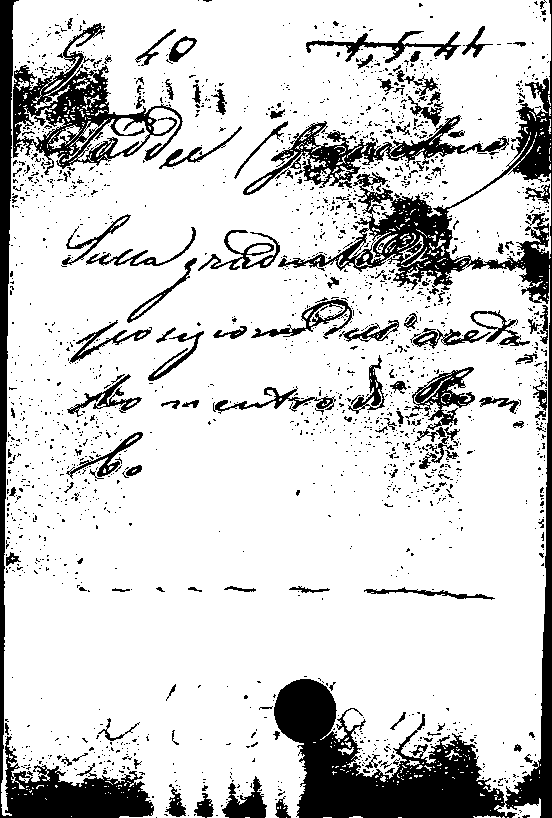 G 40 1, 5, 44
Taddei (Gioacchino)
Sulla graduata Decom
posizione dell'aceta
to neutro di Piom
bo.
82